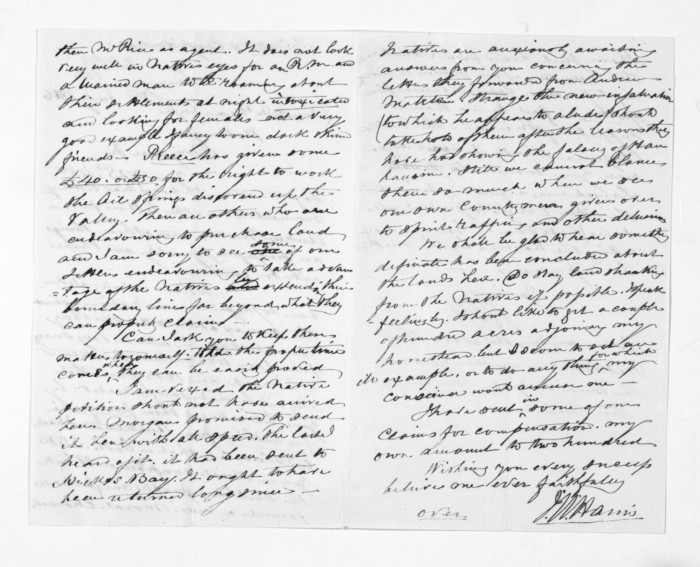 them Mr Rice as agent. It does not look
very well in Natives eyes for an R.M. and
a Married man to be roaming about
their settlements at night intoxicated
and looking for females not a very
good example I fancy to our dark skin
friends Preece has given some
£40. or £50 for the right to work
the Oil Springs discovered up the
Valley. There are others who are
endeavouring to purchase land
and I am sorry to see some of our
Settlers endeavouring to take advan
=tage of the Natives by extending their
boundary line far beyond what they
can properly claim
Can I ask you to keep these
matters to yourself. Until the proper time
comes when they can be easily proved
I am vexed the Native
petition should not have arrived
here Morgan promised to send
it here with all speed. The last I
heard of it, it had been sent to
Hicks's Bay. It ought to have
been returned long since
Natives are anxiously awaiting
answers from you concerning the
letter they forwarded from Andrew
Strange this new infatuation
(to which he appears to allude) should
take hold of them after the lessons they
have had shown the falacy of Hau
hauism. Still we cannot blame
them so much when we see
our own Countrymen given over
to Spirit rapping and other delusions
We shall be glad to hear something
definite has been concluded about
the lands here. Do stay land sharking
from the Natives if possible. I speak
feelingly. I should like to get a couple
of hundred acres adjoining my
homestead but I scorn to set
example, or to do any thing for which my
conscience would accuse me
I have sent in some of our
Claims for compensation. my
own amount to two hundred
Wishing you every success
believe me ever faithfully
J W Harris
over